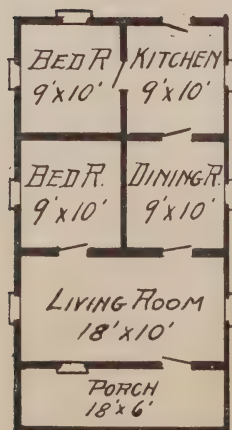 BED R
9'X10'
KITCHEN
9'X10'
BED R.
9'X10'
DINING R.
9'X10'
LIVING ROOM
18'X10'
PORCH
18'X6'